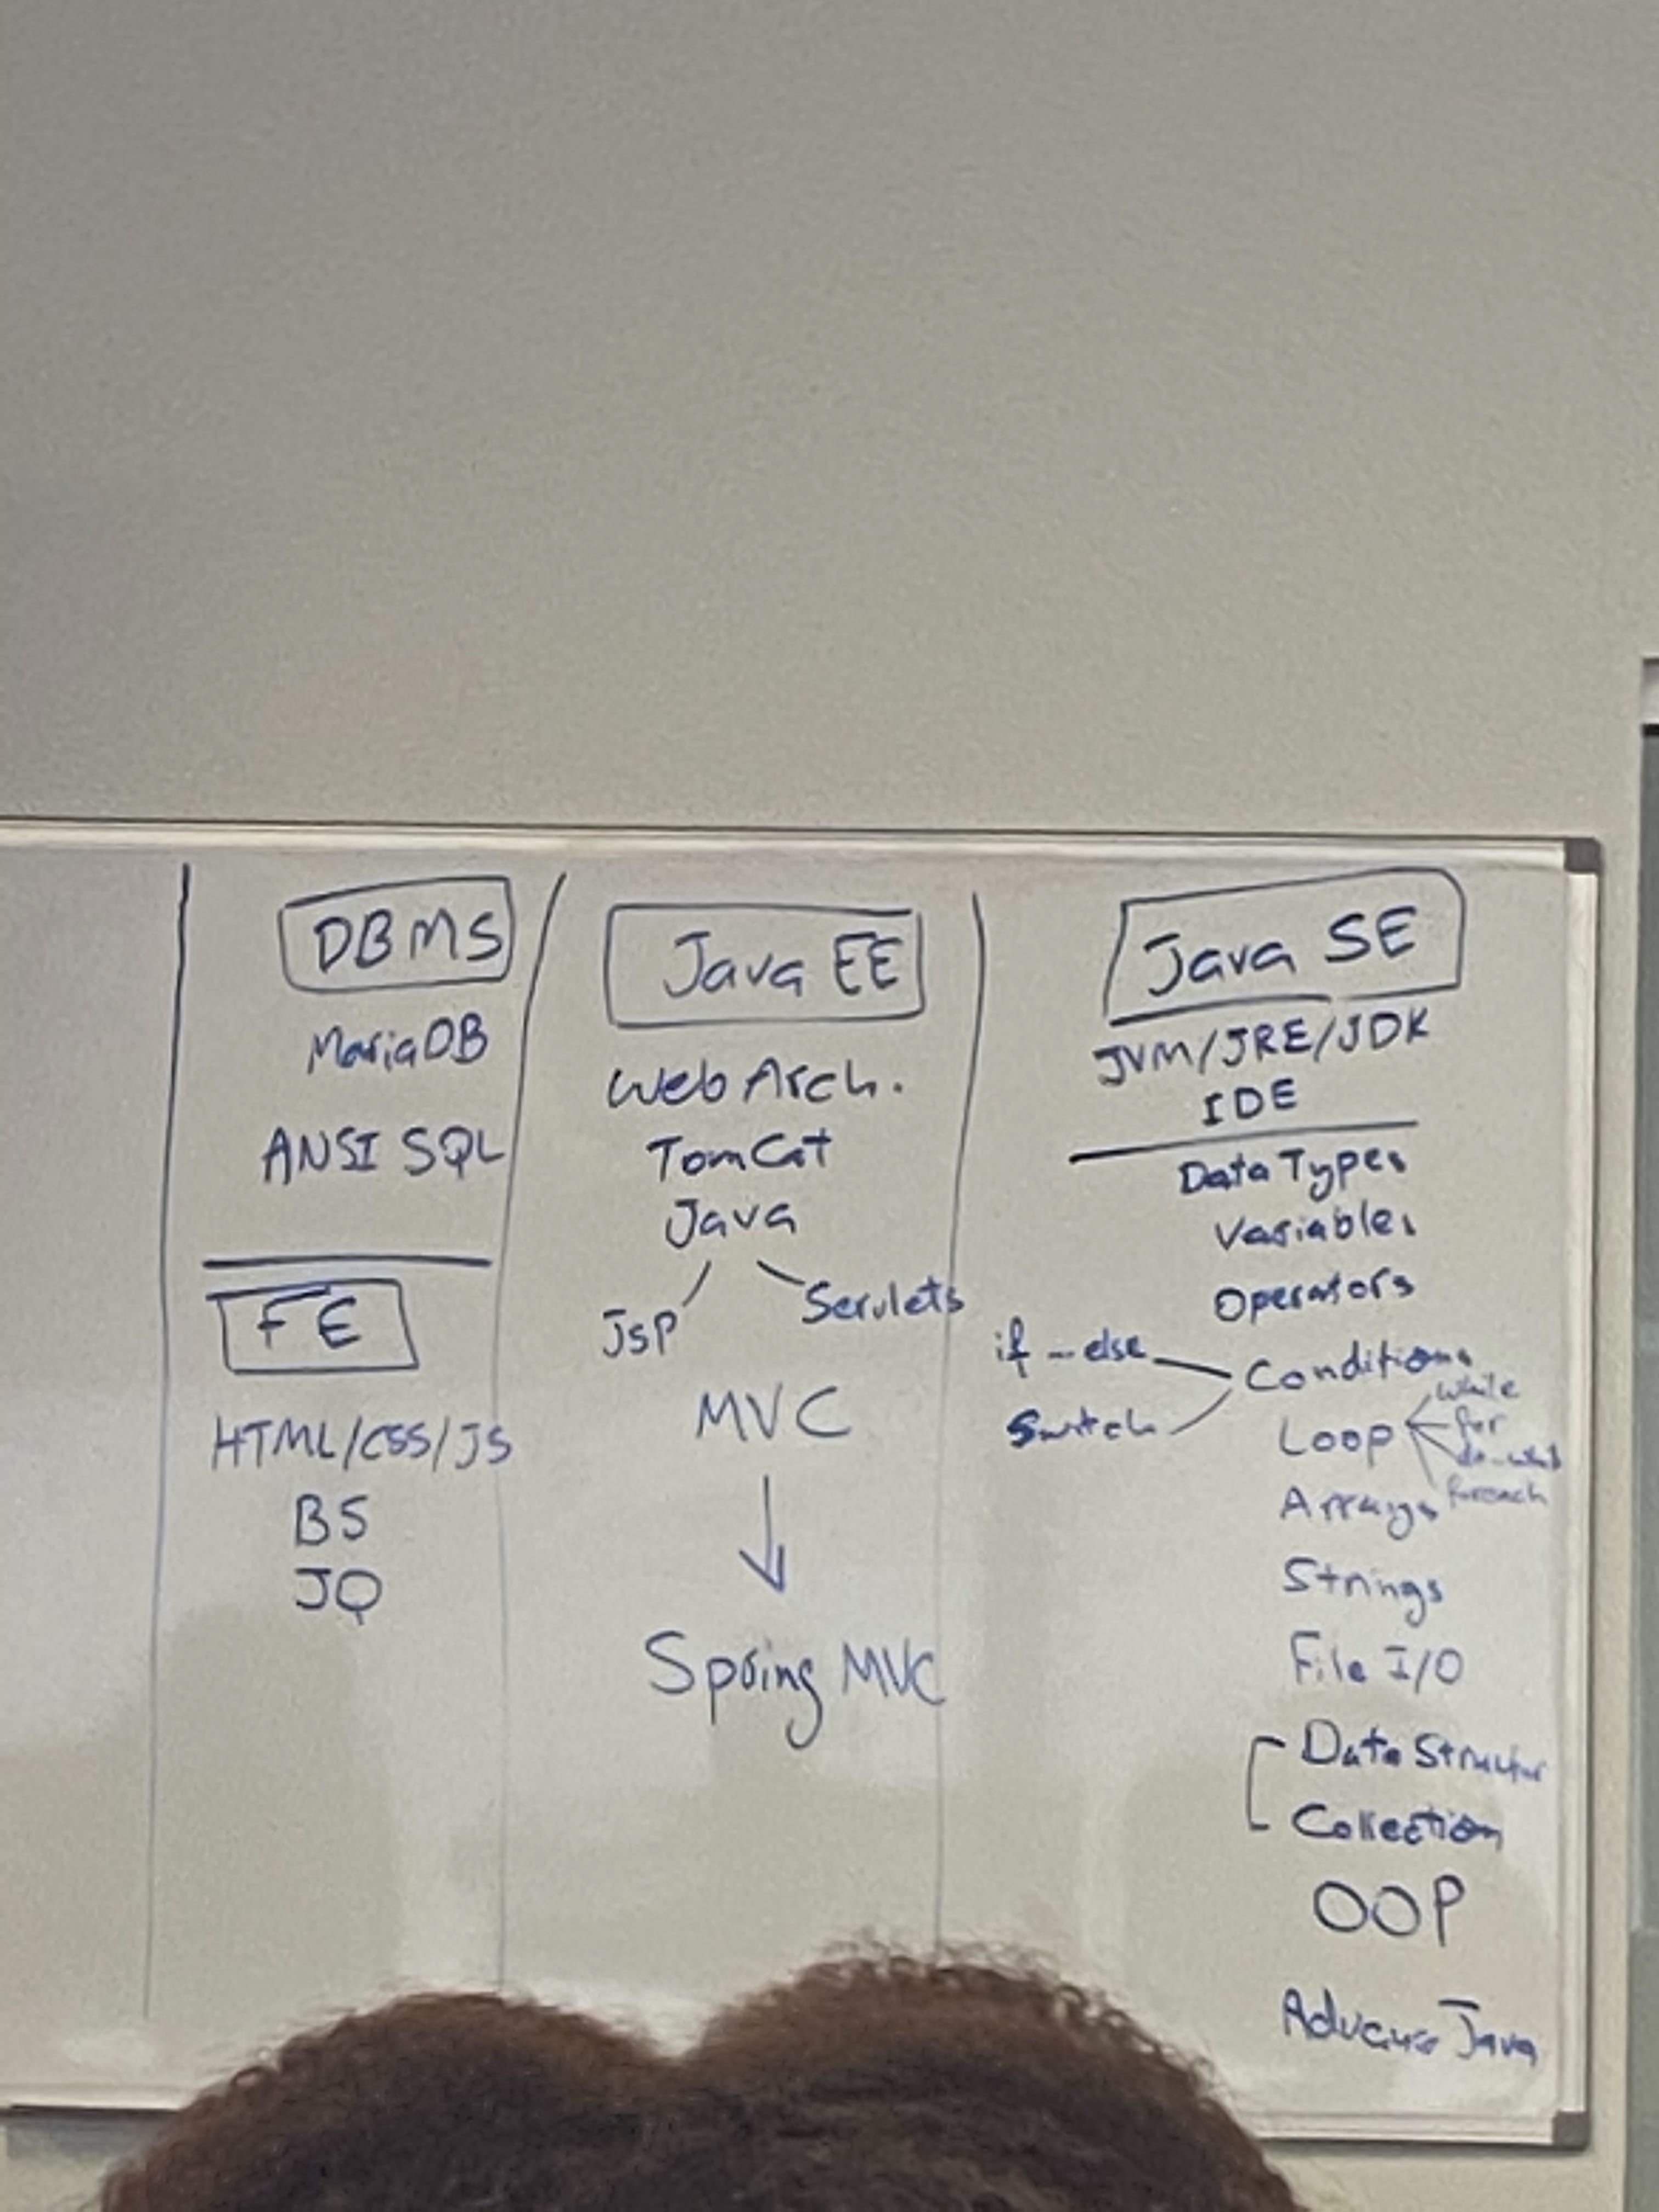 DBMS
MariaDB
ANSI SQL
FE
HTML/CSS/JS
BS
JQ
Java EE
Web Arch.
TomCat
Java
JSP
Servlets
MVC
Spring MVC
Java SE
JVM/JRE/JDK
IDE
Data Types
Variables
Operators
if-else
Switch
Conditions
Loop
while
for
do-while
foreach
Arrays
Strings
File I/O
Data Structur
Collection
OOP
Java